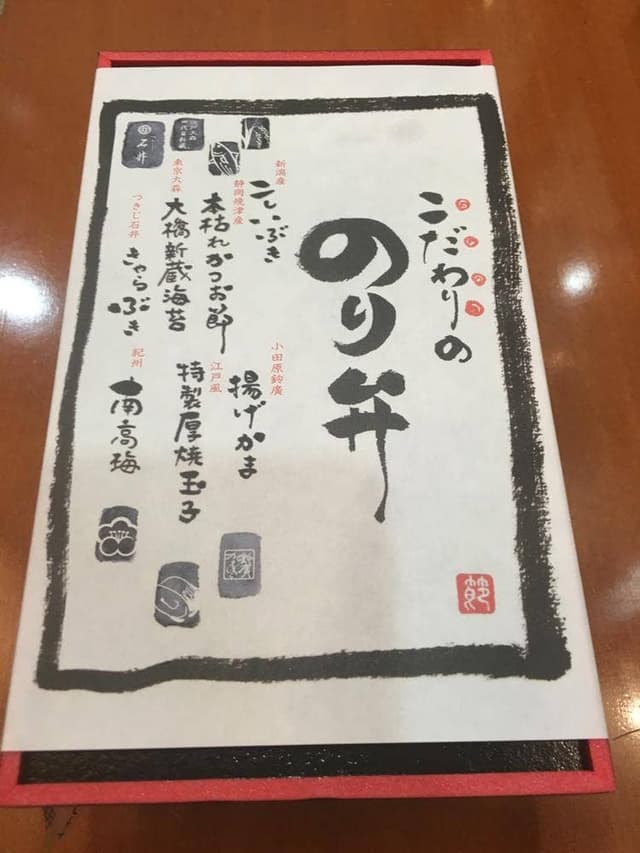 こだわりの
のり弁
新潟産
こしいぶき
静岡焼津産
本枯れかつお節
東京大森
大橋新蔵海苔
つきじ石井
きゃらぶき
小田原鈴廣
揚げかま
江戸風
特製厚焼玉子
紀州
南高梅
石井